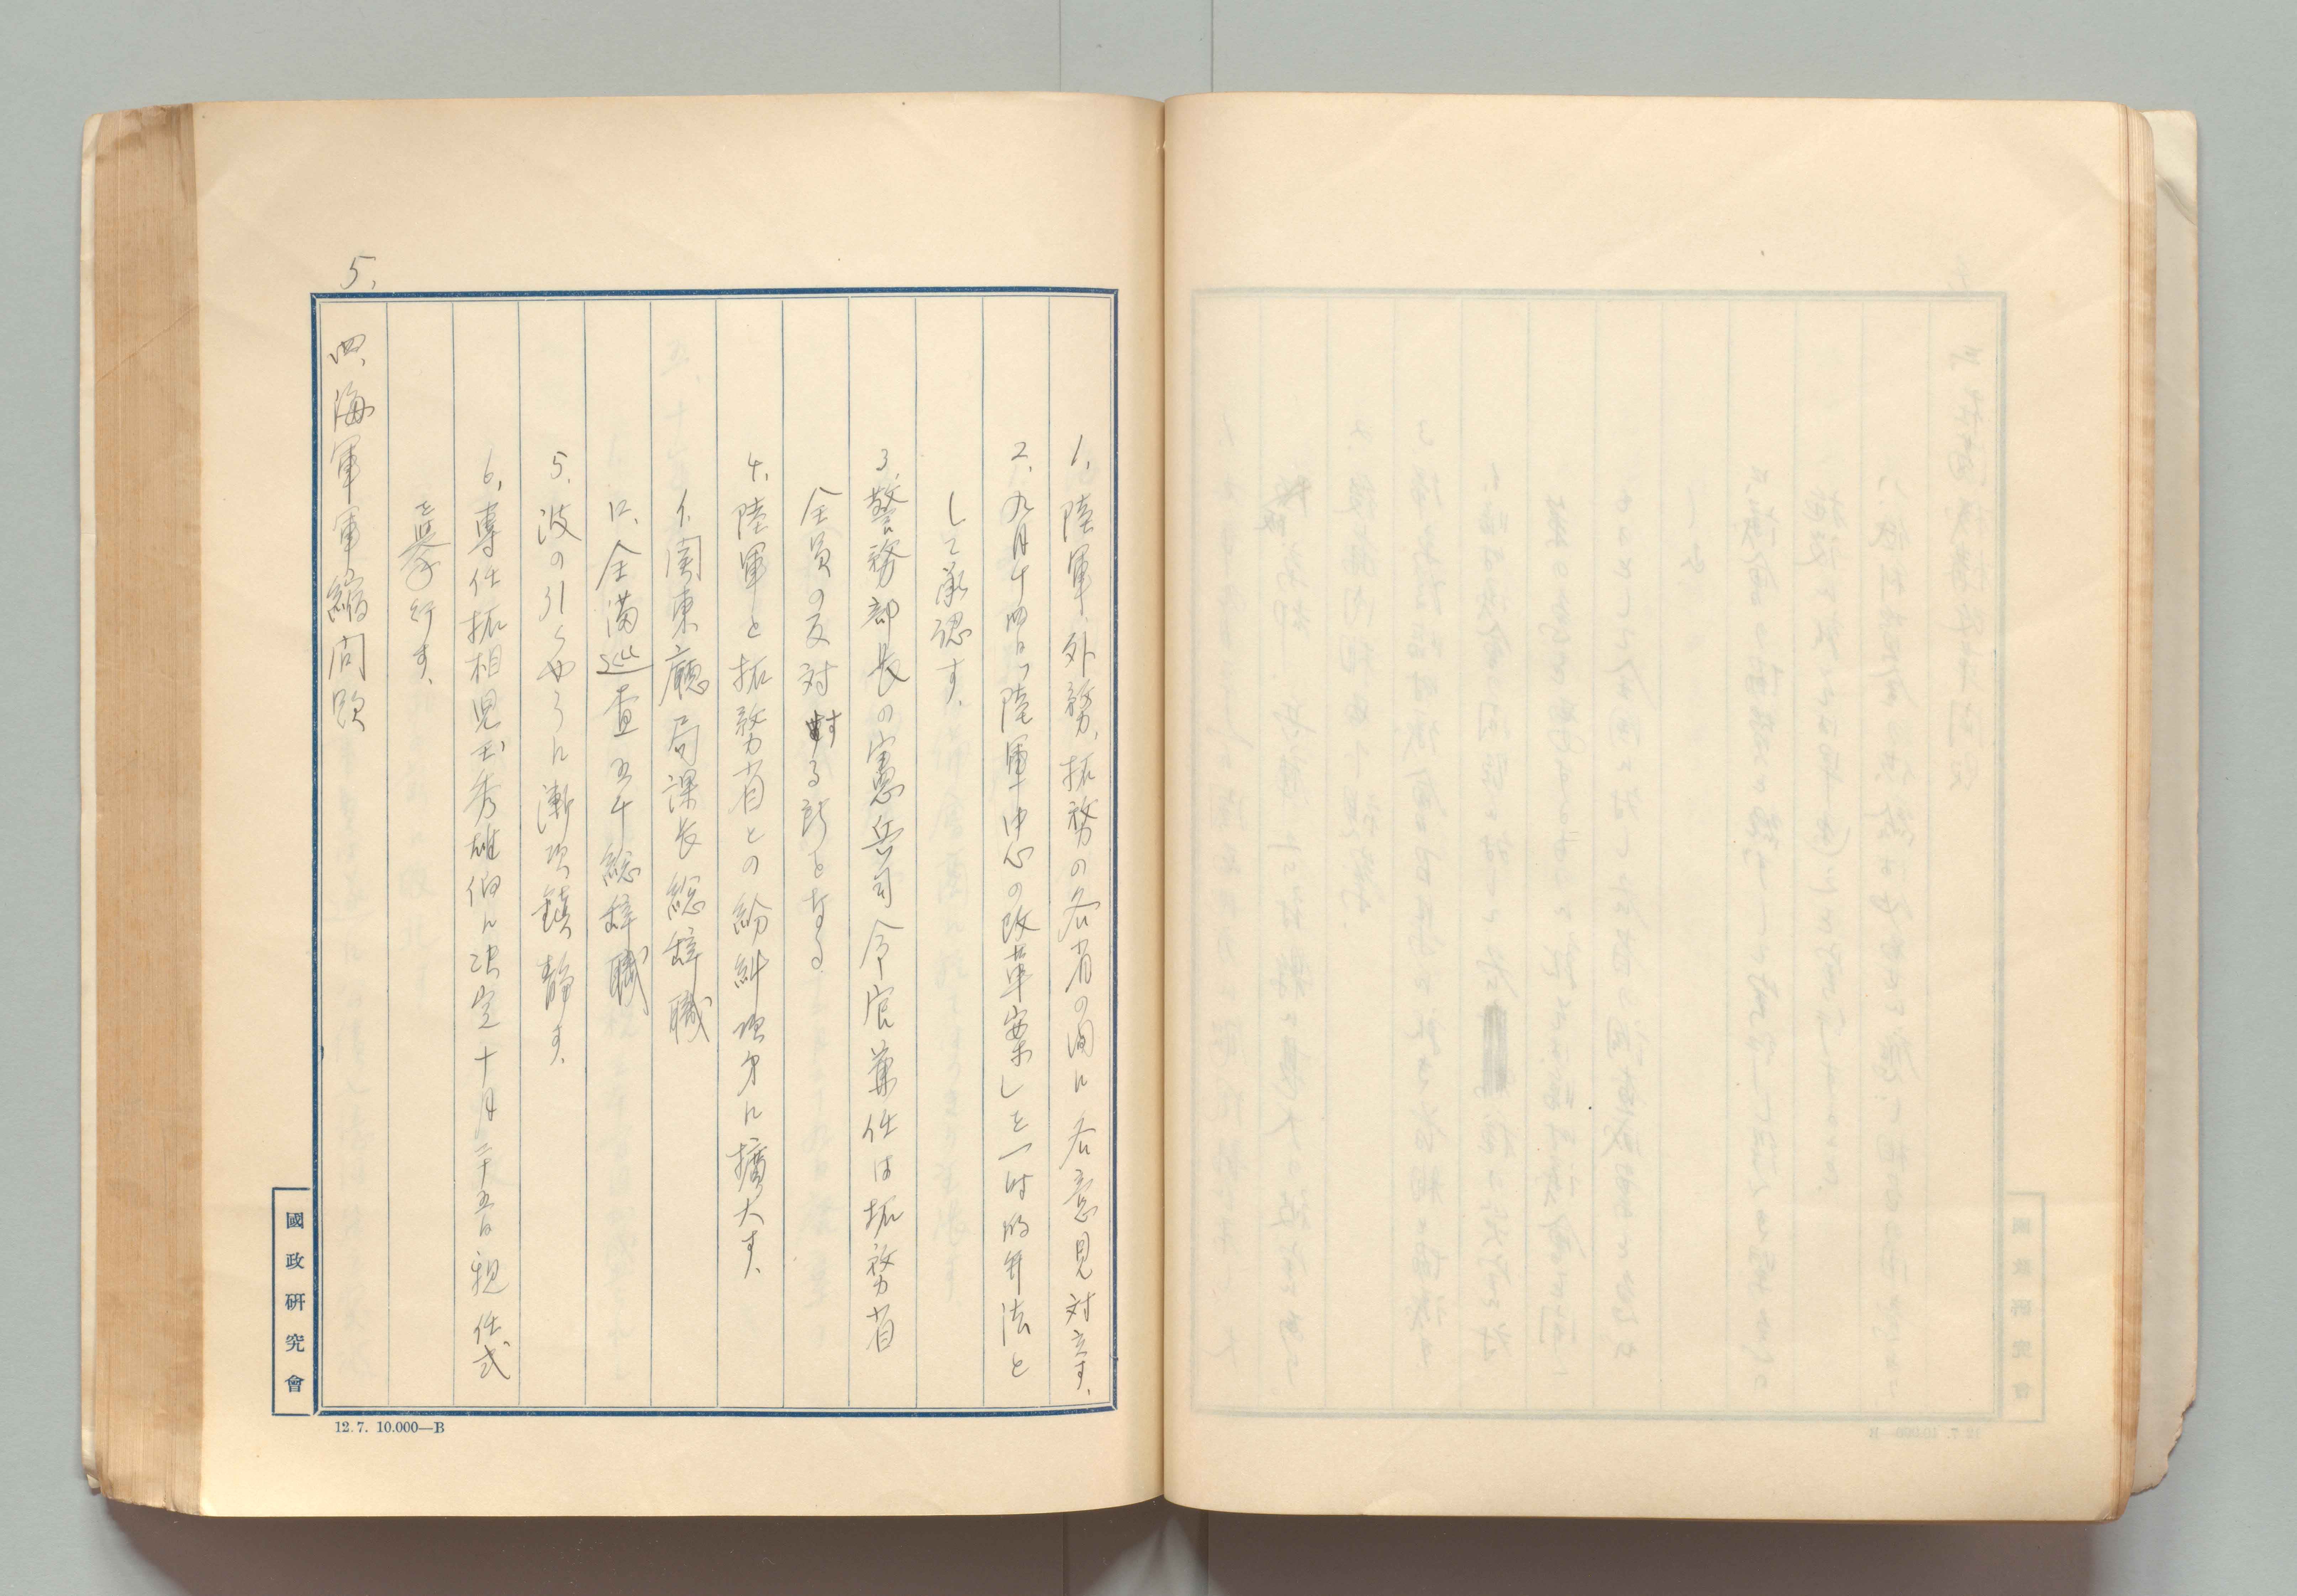 5.
1. 陸軍、外務、拓務の各省の間に各意見対立す、
2. 九月十四日「陸軍中心の改革案」を一時的弁法と
して承認す、
3. 警務部長の憲兵司令官兼任は拓務省
全員の反対する所となる
4. 陸軍と拓務省との紛糾次第に擴大す、
イ、関東廳局課長総辞職
ロ、全満巡査五千総辞職
5. 波の引くやうに漸次鎮静す、
6. 専任拓相児玉秀雄伯に決定 十月二十五日親任式
を挙行す、
四、海軍軍縮問題
國政研究會
12.7. 10.000—B